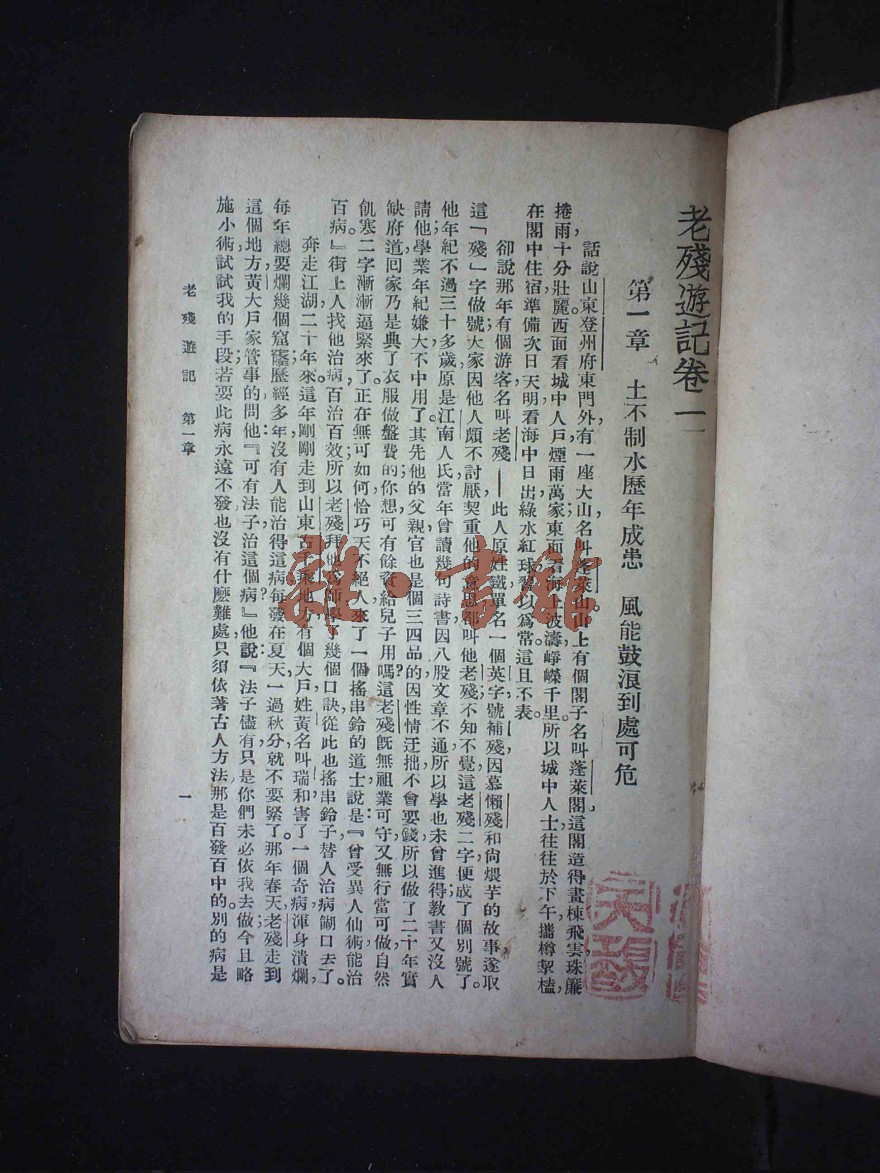 老殘遊記卷一
第一章　土不制水歷年成患　風能鼓浪到處可危
話說山東登州府東門外，有一座大山，名叫蓬萊山。山上有個閣子，名叫蓬萊閣。這閣造得畫棟飛雲，珠簾
捲雨，十分壯麗。西面看城中人戶，煙雨萬家；東面看海上波濤，崢嶸千里。所以城中人士往往於下午攜樽挈榼，
在閣中住宿，準備次日天明看海中日出，綠水紅球，習以爲常。這且不表。
卻說那年有個游客，名叫老殘——此人原姓鐵，單名一個英字，號補殘；因慕懶殘和尙煨芋的故事，遂取
這「殘」字做號。大家因他人頗不討厭，契重他的意思，都叫他老殘。不知不覺，這老殘二字便成了個別號了。
他年紀不過三十多歲，原是江南人氏。當年曾讀幾句詩書，因八股文章不通，所以學也未曾進得，敎書又沒人
請他，學業年紀嫌大，不中用了。其先，他的父親官也是個三四品的，因性情迂拙，不會要錢，所以做了二十年實
缺府道，回家乃是典了衣服做盤費的。你想，可有餘資給兒子用嗎？這老殘旣無祖業可守，又無行當可做，自然
飢寒二字漸漸逼緊來了。正在無可如何，恰巧天不絕人，來了一個搖串鈴的道士，說是：『曾受異人仙術，能治
百病。』街上人找他治病，百治百效，所以老殘拜他爲師，學了幾個口訣，從此也搖串鈴子，替人治病餬口去了。
奔走江湖二十年來。這年剛剛走到山東古千乘地方，有個大戶，姓黃，名叫瑞和，害了一個奇病：渾身潰爛，
每年總要爛幾個窟窿。歷經多年，沒有人能治得這病。每發在夏天，一過秋分，就不要緊了。那年春天，老殘走到
這個地方，黃大戶家管事的問他：『可有法子治這個病？』他說：『法子儘有，只是你們未必依我去做。今且略
施小術，試試我的手段。若要此病永遠不發，也沒有什麽難處，只須依著古人方法，那是百發百中的。別的病是
老殘遊記　第一章
一
雜·書館